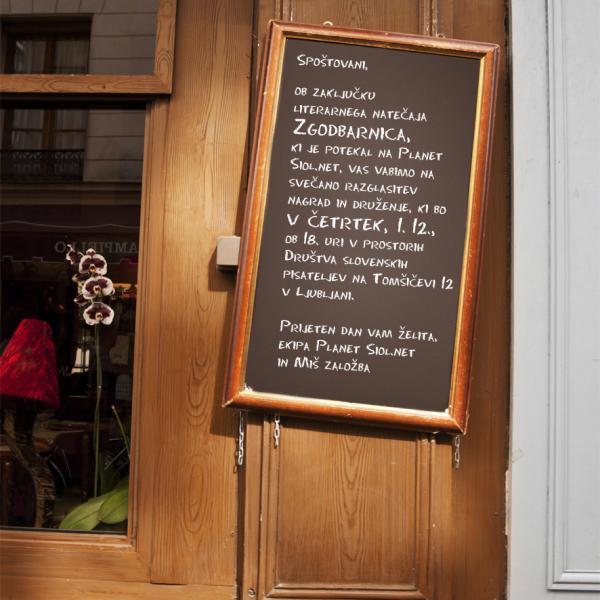 Spoštovani,
ob zaključku
literarnega natečaja
Zgodbarnica,
ki je potekal na Planet
Siol.net, vas vabimo na
svečano razglasitev
nagrad in druženje, ki bo
v četrtek, 1. 12.,
ob 18. uri v prostorih
Društva slovenskih
pisateljev na Tomšičevi 12
v Ljubljani.
Prijeten dan vam želita,
ekipa Planet Siol.net
in Miš založba